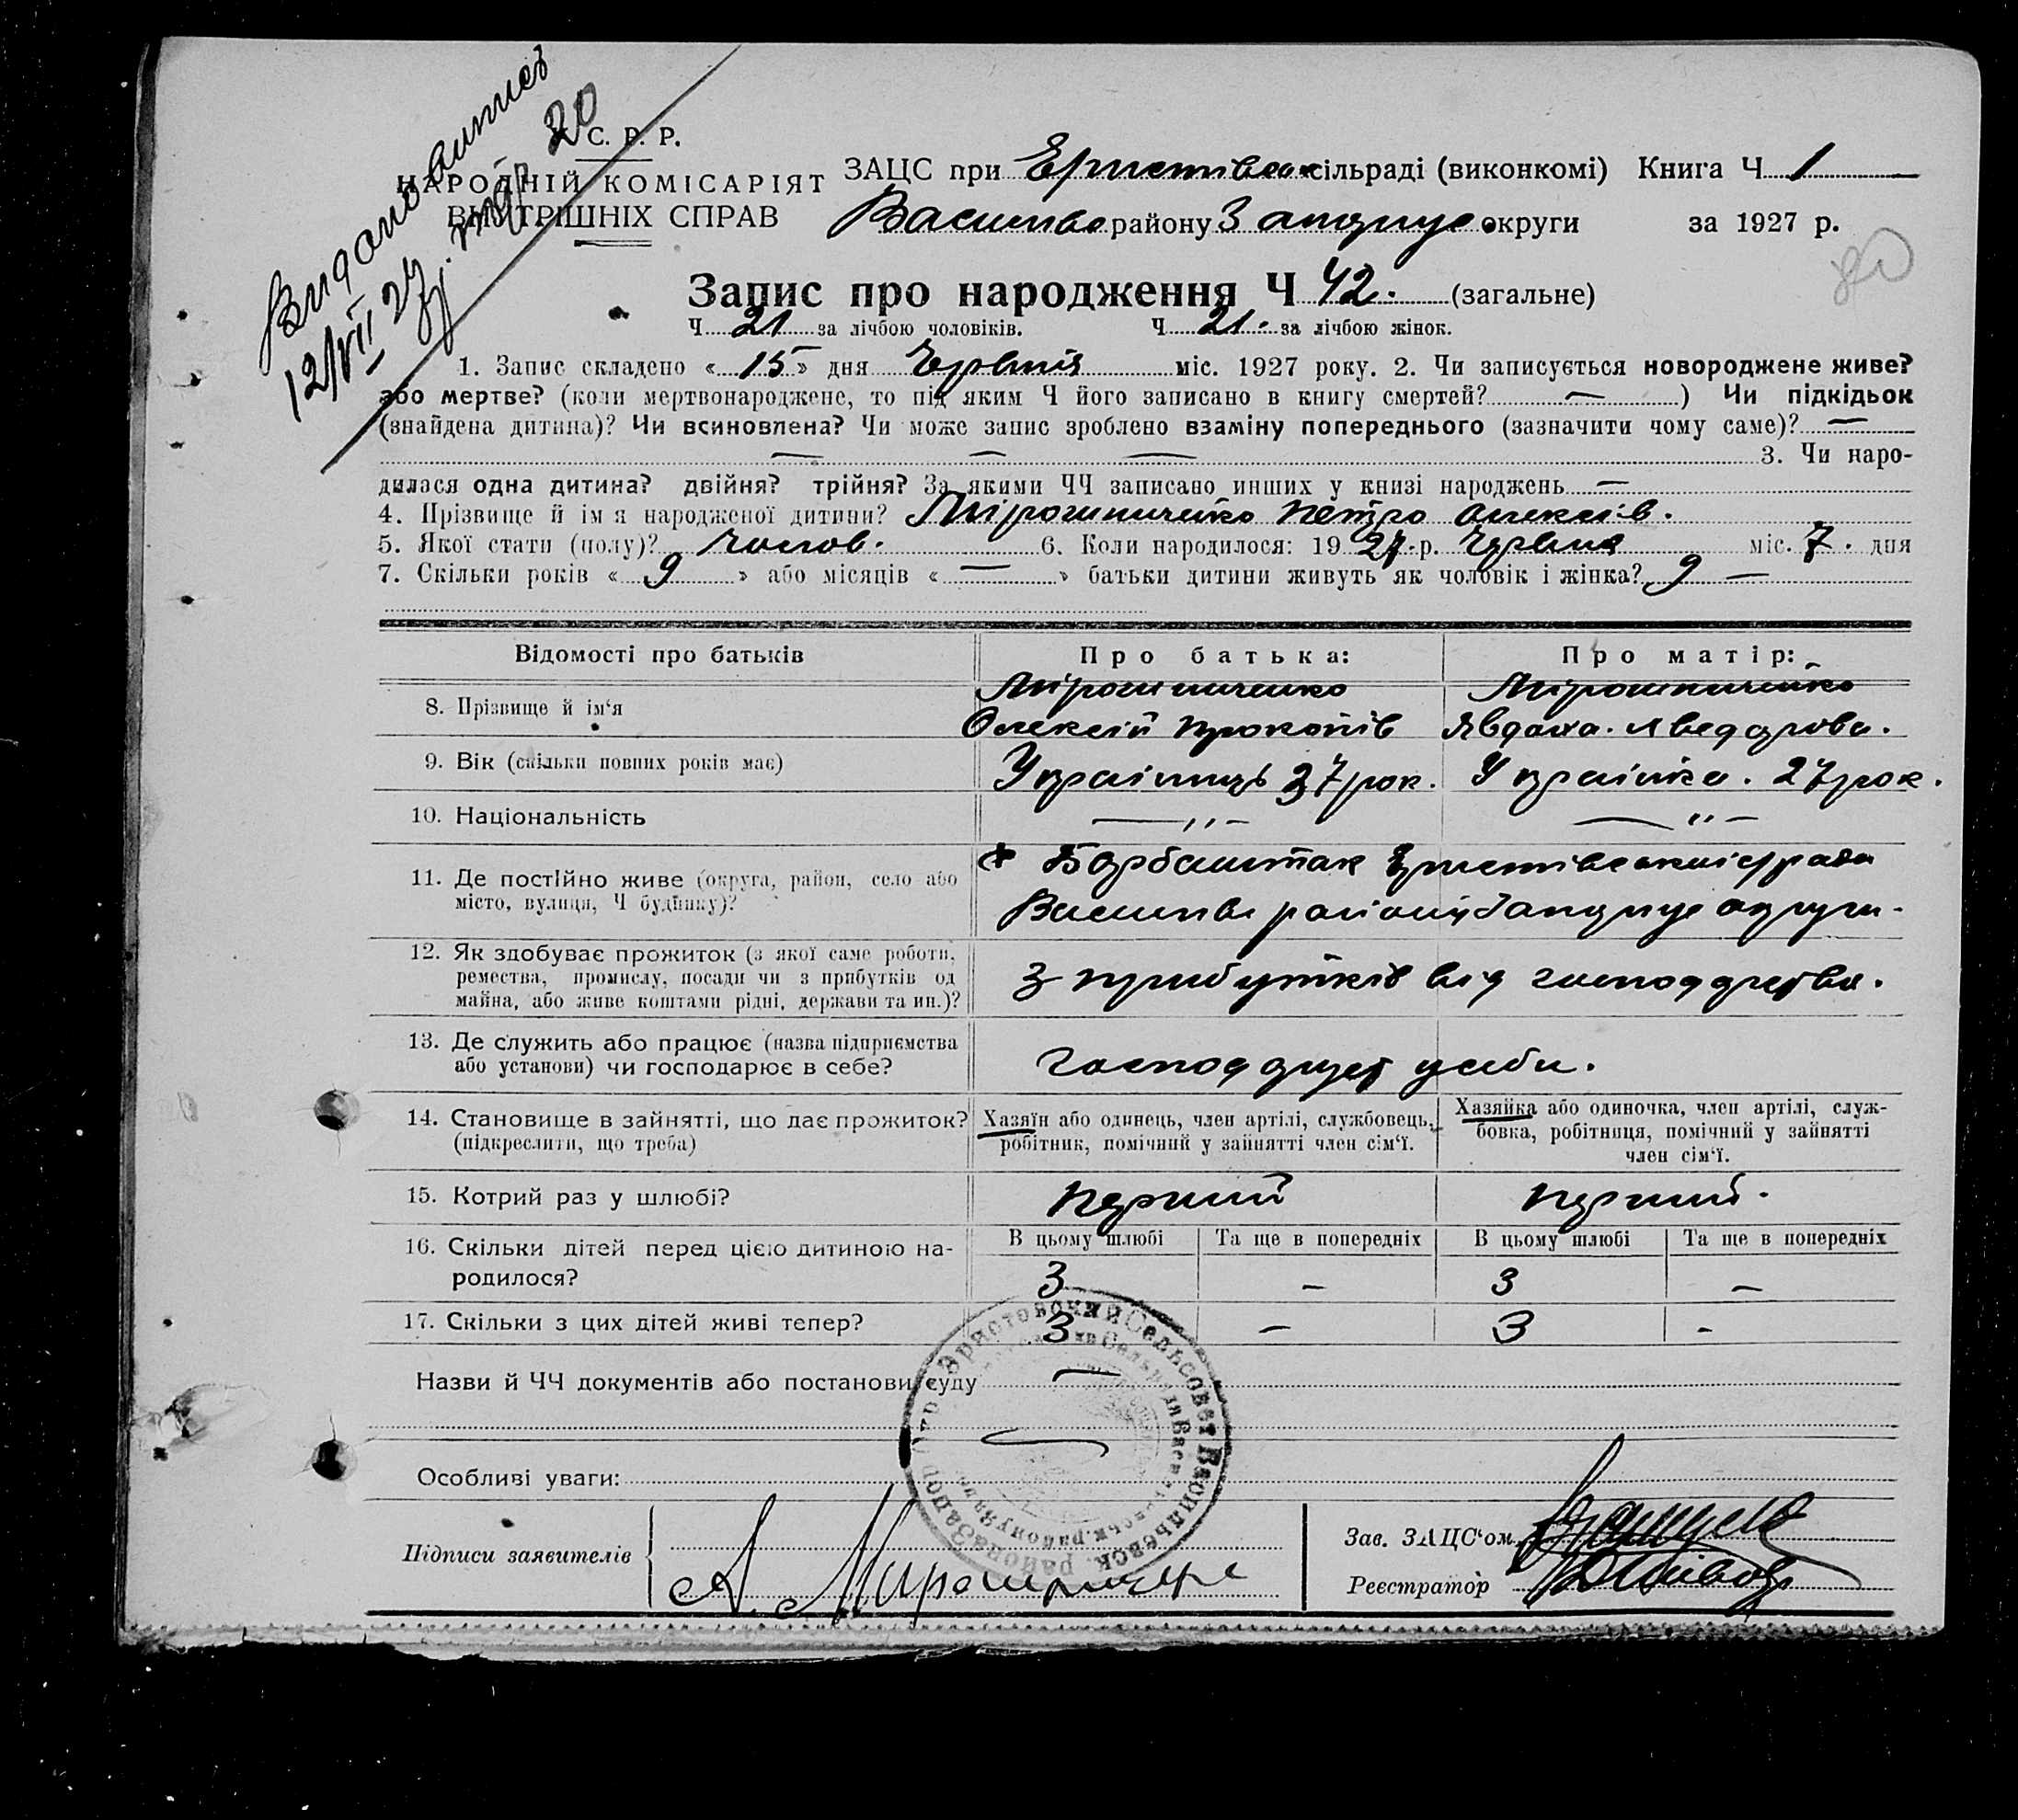 Видано виписъ
12/VII 27 р. 20
У. С. Р. Р.
НАРОДНІЙ КОМІСАРІЯТ
ВНУТРІШНІХ СПРАВ
ЗАЦС при Еристівсь сільраді (виконкомі) Книга Ч 1
Василівс району Запоріж округи за 1927 р.
Запис про народження Ч 42. (загальне)
Ч 21 за лічбою чоловіків. Ч 21. за лічбою жінок.
1. Запис складено « 15 » дня Червня міс. 1927 року. 2. Чи записується новороджене живе?
або мертве? (коли мертвонароджене, то під яким Ч його записано в книгу смертей? — ) Чи підкідьок
(знайдена дитина)? Чи всиновлена? Чи може запис зроблено взаміну попереднього (зазначити чому саме)? —
— — — 3. Чи наро-
дилася одна дитина? двійня? трійня? За якими ЧЧ записано инших у книзі народжень —
4. Прізвище й ім'я народженої дитини? Мірошниченко Петро Олексіїв.
5. Якої стати (полу)? чолов. 6. Коли народилося: 19 27. р. Червня міс. 7. дня
7. Скільки років « 9 » або місяців « — » батьки дитини живуть як чоловік і жінка? 9 —
Відомості про батьків Про батька: Про матір:
8. Прізвище й ім'я Мірошниченко Мірошниченко
Олексій Прокопів Явдоха.
9. Вік (скільки повних років має) Українець 37 рок. Українка. 27 рок.
10. Національність — „ — — „ —
11. Де постійно живе (округа, район, село або
місто, вулиця, Ч будинку)?
Василівс району Запоріж округи.
12. Як здобуває прожиток (з якої саме роботи,
ремества, промислу, посади чи з прибутків од
майна, або живе коштами рідні, держави та ин.)?
З прибутків від господарства.
13. Де служить або працює (назва підприємства
або установи) чи господарює в себе?
Господарує у себи.
14. Становище в зайнятті, що дає прожиток?
(підкреслити, що треба)
Хазяїн або одинець, член артілі, службовець,
робітник, помічний у зайнятті член сім'ї.
Хазяйка або одиночка, член артілі, служ-
бовка, робітниця, помічний у зайнятті
член сім'ї.
15. Котрий раз у шлюбі? Перший Перший.
16. Скільки дітей перед цією дитиною на-
родилося?
В цьому шлюбі Та ще в попередніх В цьому шлюбі Та ще в попередніх
3 — 3 —
17. Скільки з цих дітей живі тепер? 3 — 3 -
Назви й ЧЧ документів або постанови суду —
Особливі уваги:
Эристовский Сельсовет Васильевск. района Запор. Окр.
Підписи заявителів
А. Мирошниченко
Зав. ЗАЦС'ом
Реєстратор